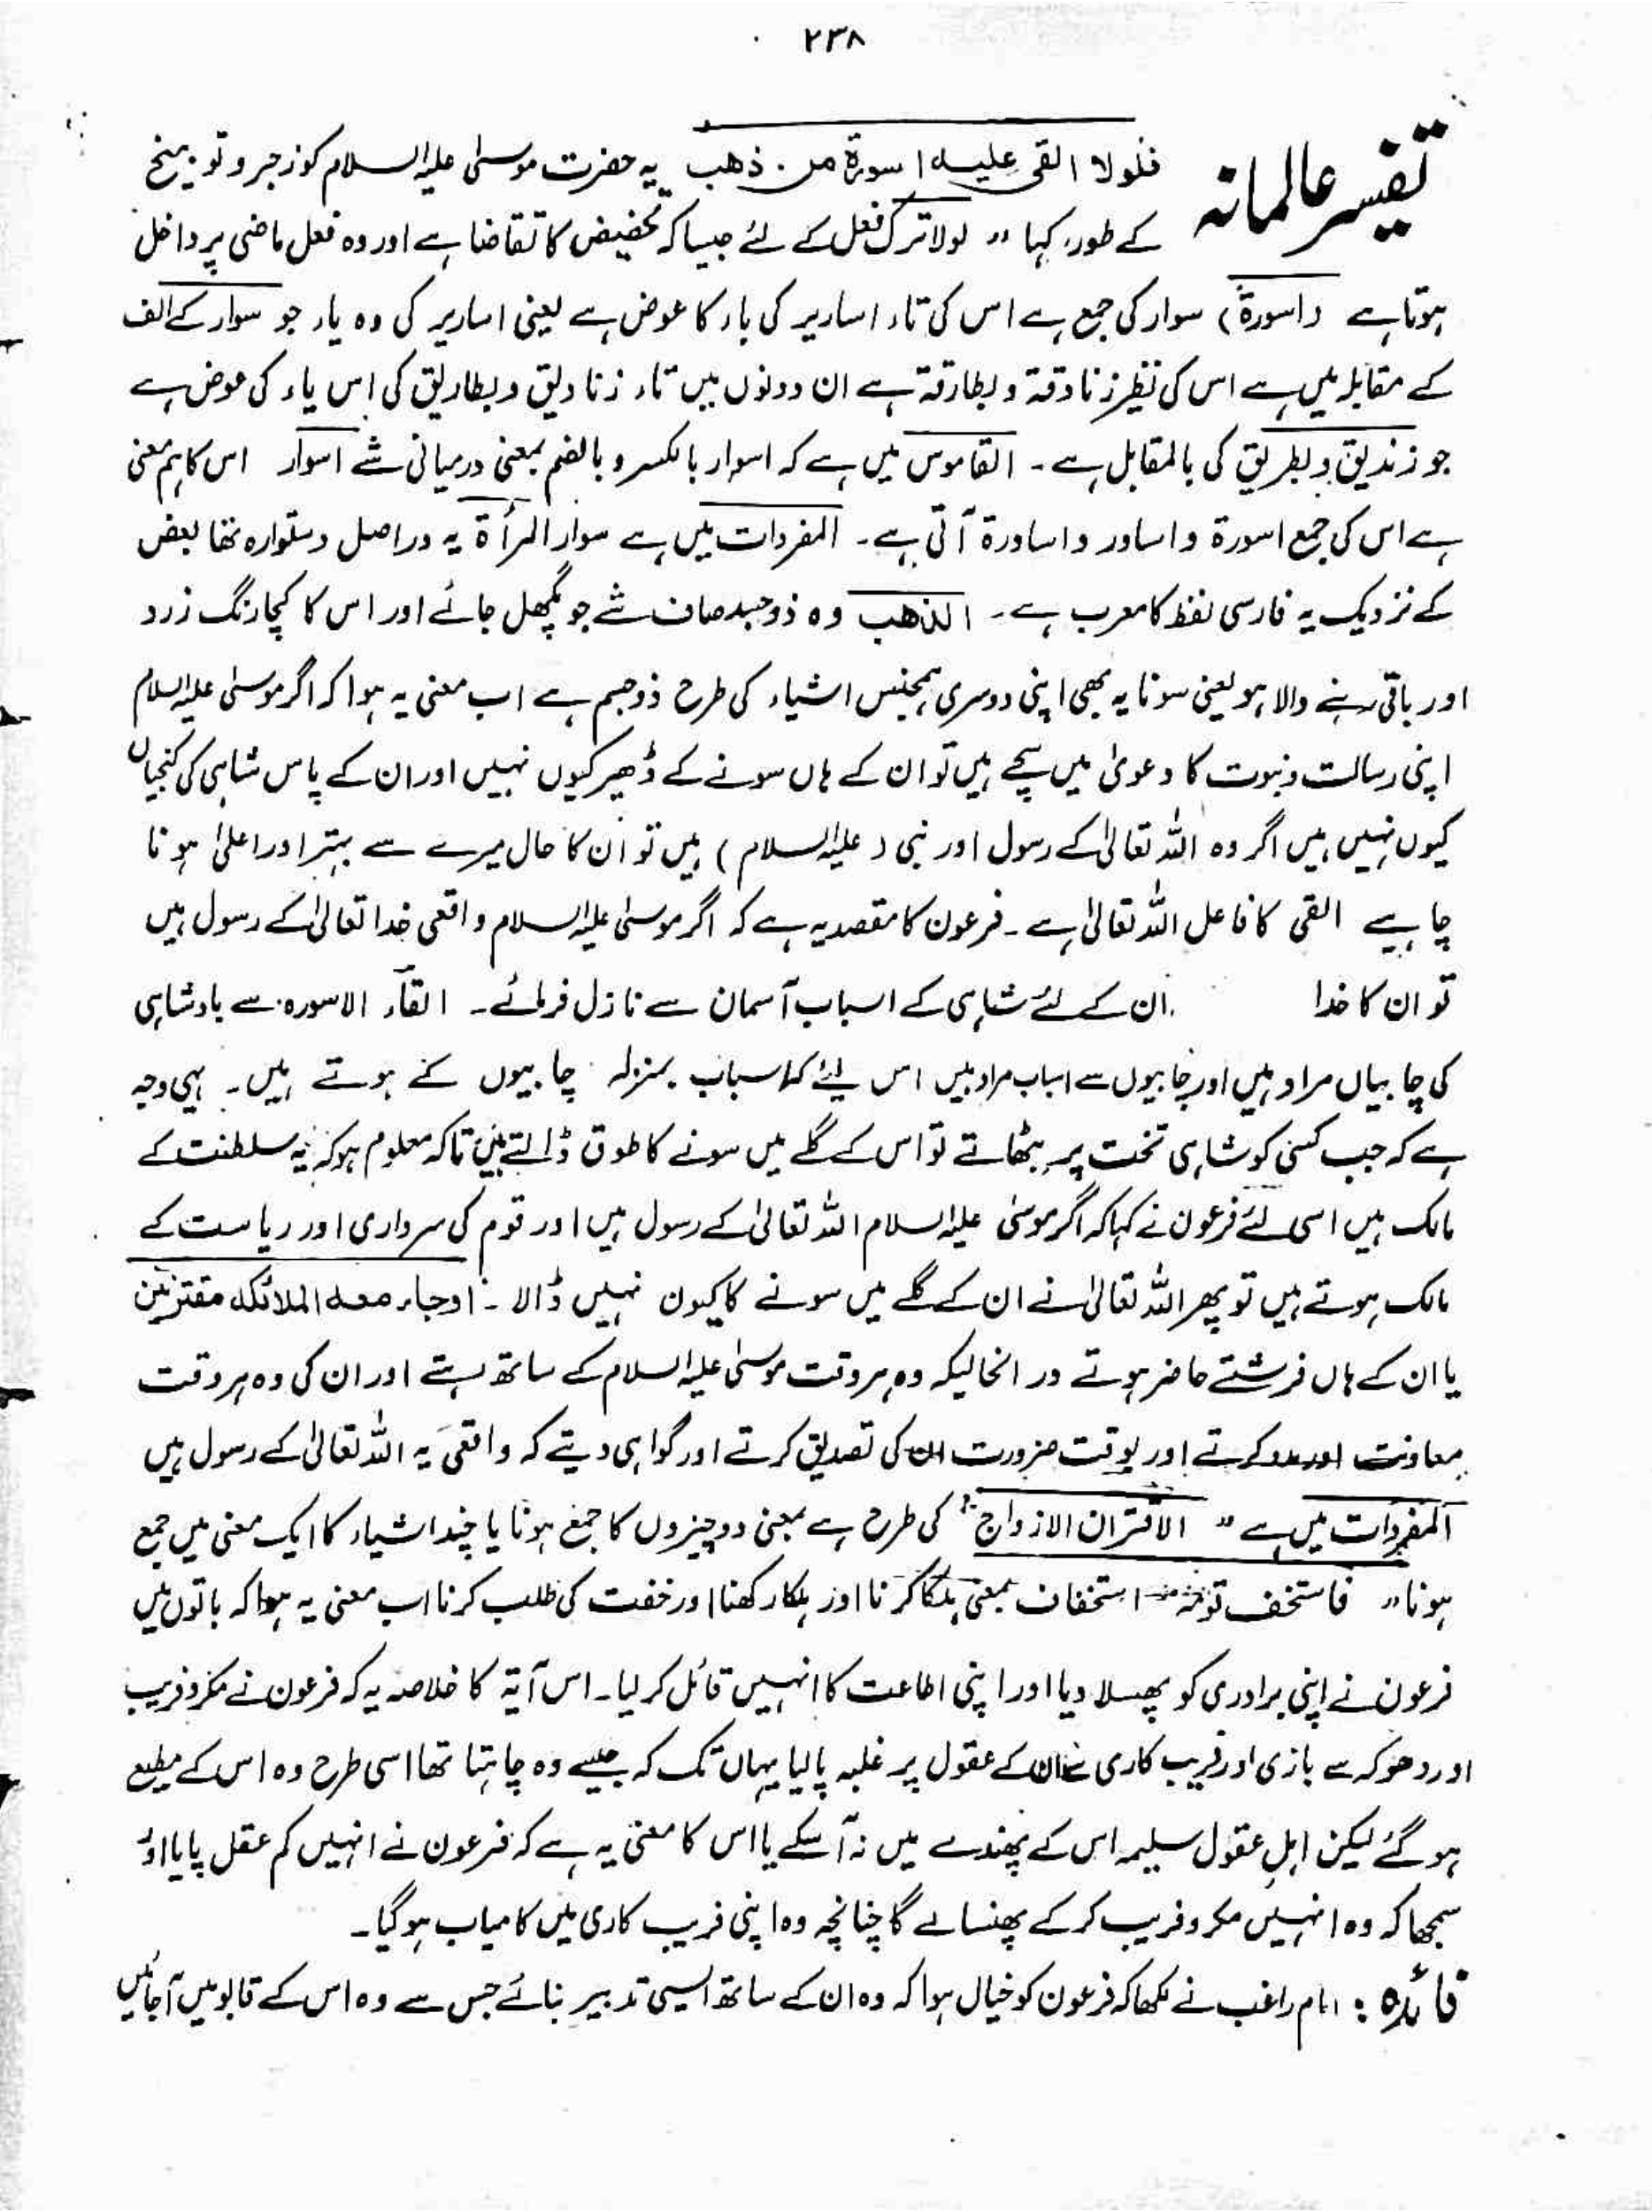 ۲۳۸
تفسیر عالمانہ
فلولا القی علیہ اسورۃ من ذھب یہ حضرت موسیٰ علیہ السلام کو زجر و توبیخ
کے طور کہا ״ لولا ترک فعل کے لئے جیسا کہ تحضیض کا تقاضا ہے اور وہ فعل ماضی پر داخل
ہوتا ہے (اسورۃ) سوار کی جمع ہے اس کی تاء اساریر کی یاء کا عوض ہے یعنی اساریر کی وہ یاء جو سوار کے الف
کے مقابلہ میں ہے اس کی نظیر زنادقۃ و بطارقۃ ہے ان دونوں میں تاء زنادیق و بطاریق کی اس یاء کی عوض ہے
جو زندیق و بطریق کی بالمقابل ہے ۔ القاموس میں ہے کہ اسوار بالکسر و بالضم بمعنی درمیانی شے اسوار اس کا ہم معنی
ہے اس کی جمع اسورۃ و اساور و اساورۃ آتی ہے ۔ المفردات میں ہے سوار المرأۃ یہ دراصل دستوارہ تھا بعض
کے نزدیک یہ فارسی لفظ کا معرب ہے ۔ الذھب وہ ذوجسد صاف شے جو پگھل جائے اور اس کا کچا رنگ زرد
اور باقی رہنے والا ہو یعنی سونا یہ بھی اپنی دوسری ہمجنس اشیاء کی طرح ذوجسم ہے اب معنی یہ ہوا کہ اگر موسیٰ علیہ السلام
اپنی رسالت و نبوت کا دعویٰ میں سچے ہیں تو ان کے ہاں سونے کے ڈھیر کیوں نہیں اور ان کے پاس شاہی کی کنجیاں
کیوں نہیں ہیں اگر وہ اللہ تعالیٰ کے رسول اور نبی (علیہ السلام) ہیں تو ان کا حال میرے سے بہتر اور اعلیٰ ہونا
چاہیے القی کا فاعل اللہ تعالیٰ ہے ۔ فرعون کا مقصد یہ ہے کہ اگر موسیٰ علیہ السلام واقعی خدا تعالیٰ کے رسول ہیں
تو ان کا خدا ان کے لئے شاہی کے اسباب آسمان سے نازل فرمائے ۔ القاء الاسورہ سے بادشاہی
کی چابیاں مراد ہیں اور چابیوں سے اسباب مراد ہیں اس لیے کہ اسباب بمنزلہ چابیوں کے ہوتے ہیں ۔ یہی وجہ
ہے کہ جب کسی کو شاہی تخت پر بٹھاتے تو اس کے گلے میں سونے کا طوق ڈالتے ہیں تاکہ معلوم ہو کہ یہ سلطنت کے
مالک ہیں اسی لئے فرعون نے کہا کہ اگر موسیٰ علیہ السلام اللہ تعالیٰ کے رسول ہیں اور قوم کی سرداری اور ریاست کے
مالک ہوتے ہیں تو پھر اللہ تعالیٰ نے ان کے گلے میں سونے کا کیوں نہیں ڈالا ۔ اوجاء معہ الملائکۃ مقترنین
یا ان کے ہاں فرشتے حاضر ہوتے در انحالیکہ وہ ہر وقت موسیٰ علیہ السلام کے ساتھ رہتے اور ان کی وہ ہر وقت
معاونت اور مدد کرتے اور بوقت ضرورت ان کی تصدیق کرتے اور گواہی دیتے کہ واقعی یہ اللہ تعالیٰ کے رسول ہیں
المفردات میں ہے ״ الاقتران الازدواج ״ کی طرح ہے بمعنی دو چیزوں کا جمع ہونا یا چند اشیاء کا ایک معنی میں جمع
ہونا ״ فاستخف قومہ استخفاف بمعنی ہلکا کرنا اور ہلکا رکھنا اور خفت کی طلب کرنا اب معنی یہ ہوا کہ باتوں میں
فرعون نے اپنی برادری کو پھسلا دیا اور اپنی اطاعت کا انہیں قائل کر لیا ۔ اس آیۃ کا خلاصہ یہ کہ فرعون نے مکر و فریب
اور دھوکہ سے بازی اور فریب کاری سے ان کے عقول پر غلبہ پا لیا یہاں تک کہ جیسے وہ چاہتا تھا اسی طرح وہ اس کے مطیع
ہو گئے لیکن اہل عقول سلیمہ اس کے پھندے میں نہ آ سکے یا اس کا معنی یہ ہے کہ فرعون نے انہیں کم عقل پایا اور
سمجھا کہ وہ انہیں مکر و فریب کر کے پھنسالے گا چنانچہ وہ اپنی فریب کاری میں کامیاب ہو گیا ۔
فائدہ : امام راغب نے لکھا کہ فرعون کو خیال ہوا کہ وہ ان کے ساتھ ایسی تدبیر بنائے جس سے وہ اس کے قابو میں آجائیں